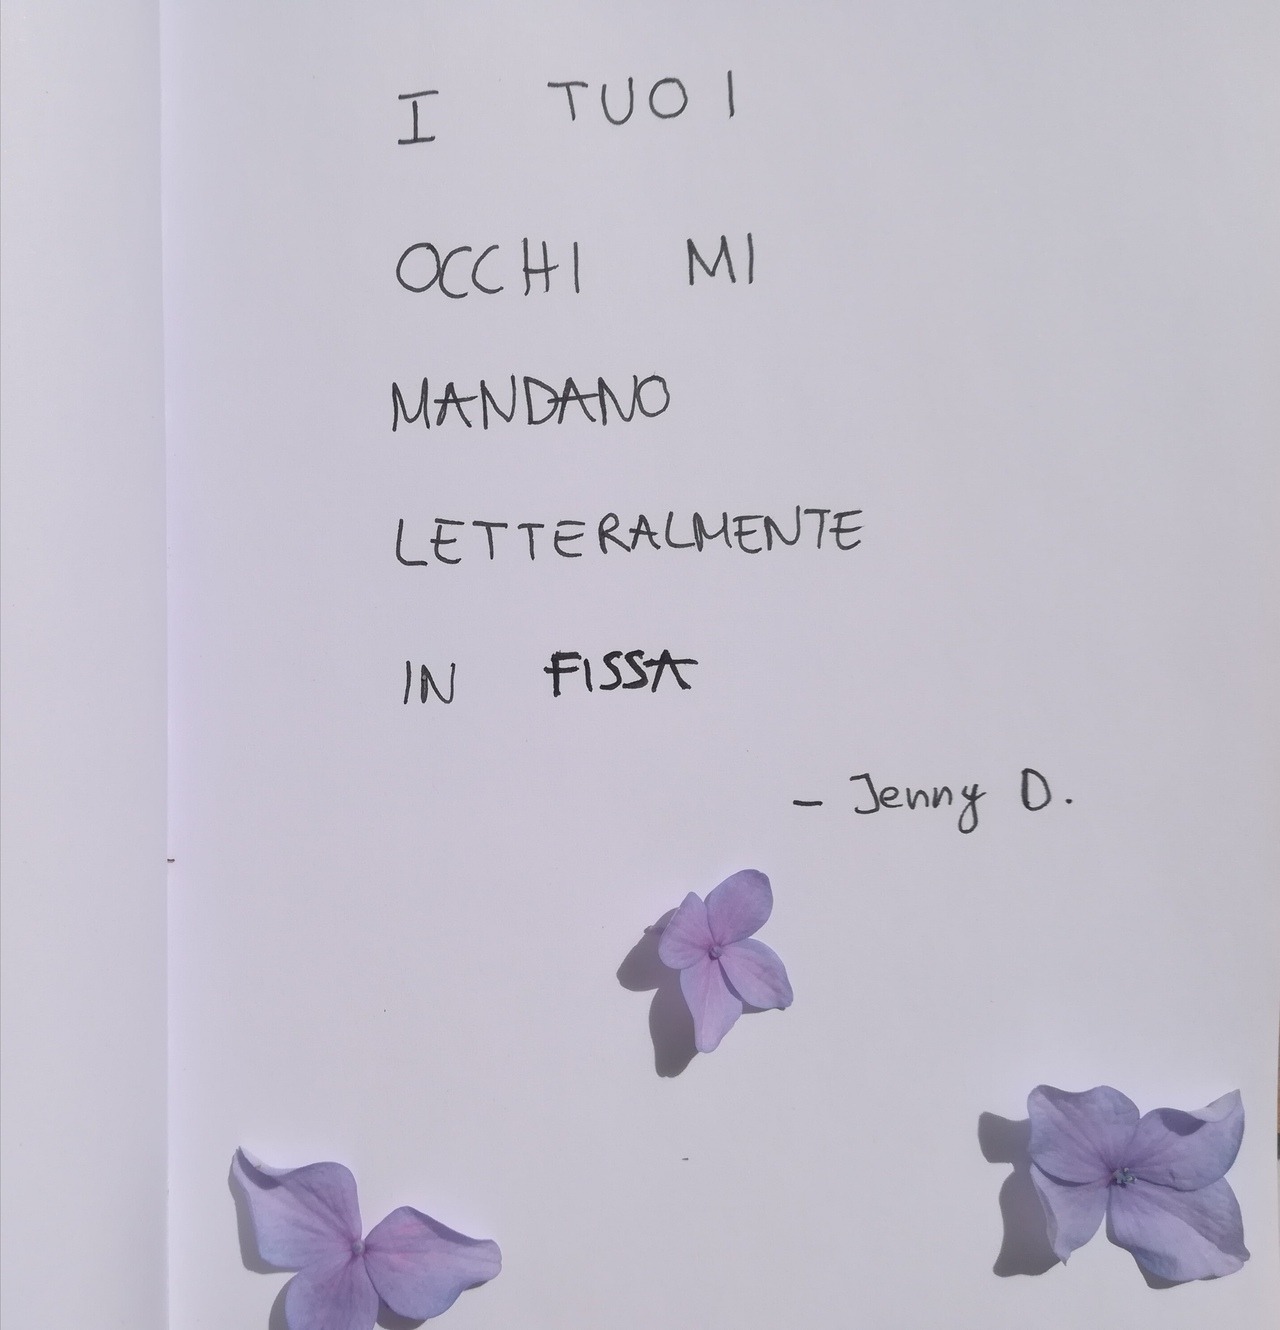 I TUOI
OCCHI MI
MANDANO
LETTERALMENTE
IN FISSA
- Jenny D.